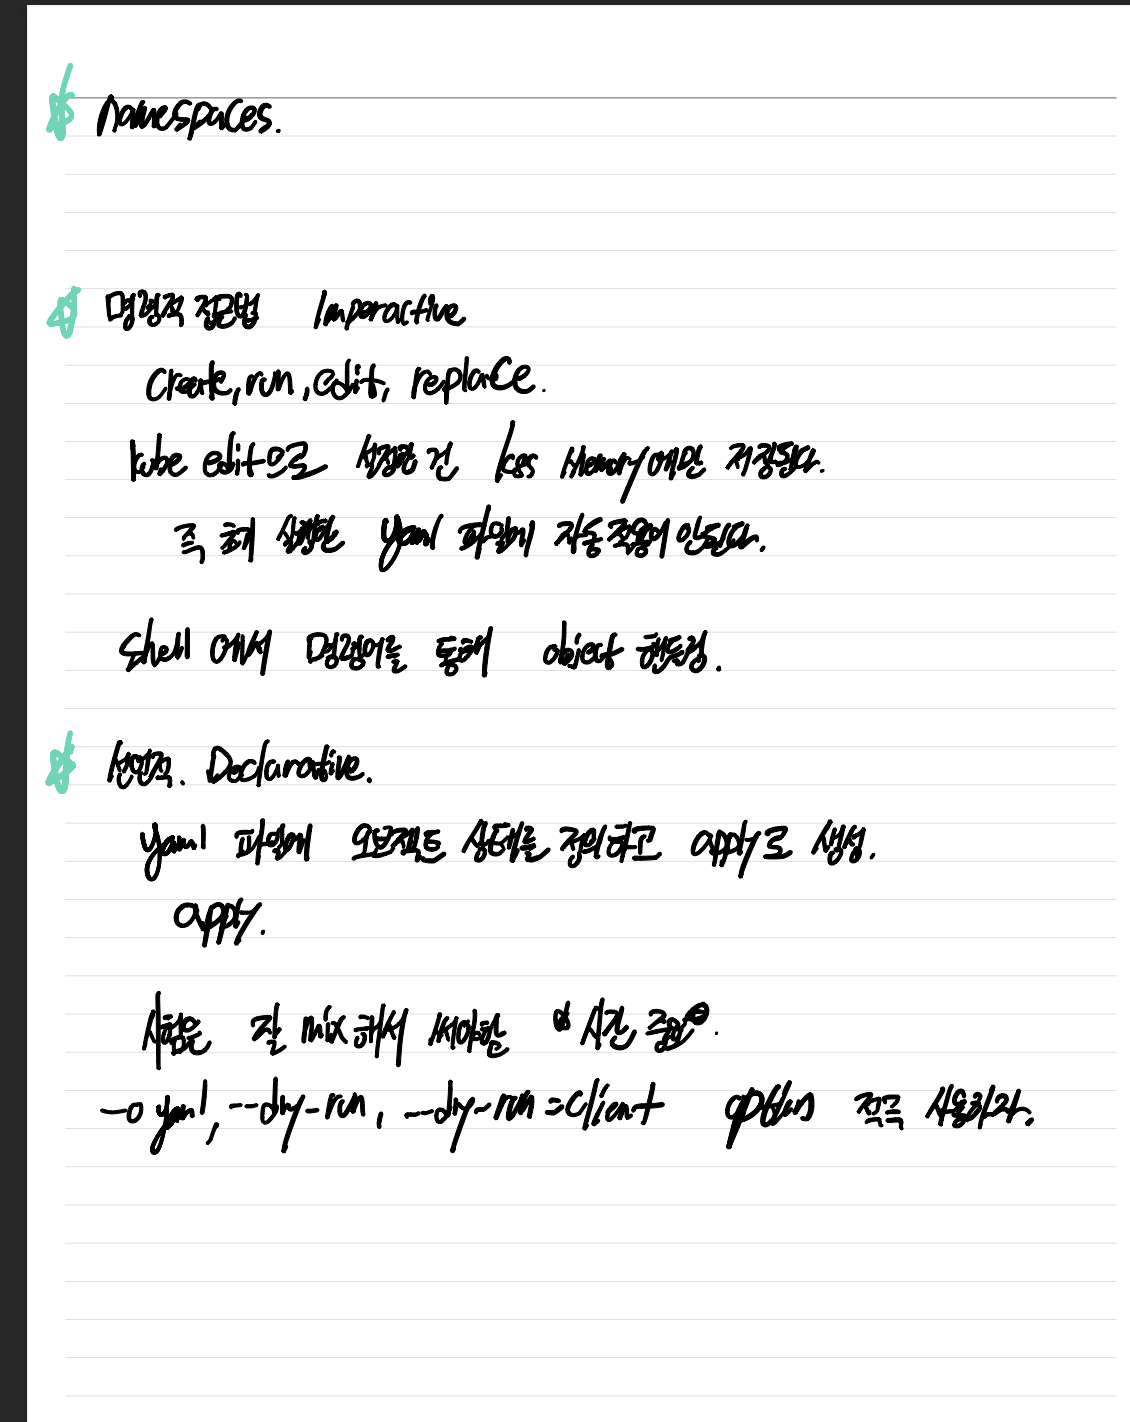 Namespaces.
명령적 접근법 Imperactive
Create, run, edit, replace.
kube edit으로 수정한 건 k8s Memory에만 저장된다.
즉 최초 실행한 yaml 파일에 자동 적용이 안된다.
Shell 에서 명령어를 통해 object 핸들링.
선언적. Declarative.
yaml 파일에 오브젝트 상태를 정의하고 apply로 생성.
apply.
시험은 잘 mix 해서 써야함 시간 중요.
-o yaml, --dry-run, --dry-run=client option 적극 사용하자.